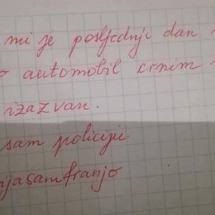 mi je posljednji dan
automobil crnim
izazvan.
sam policiji
jasamfranjo